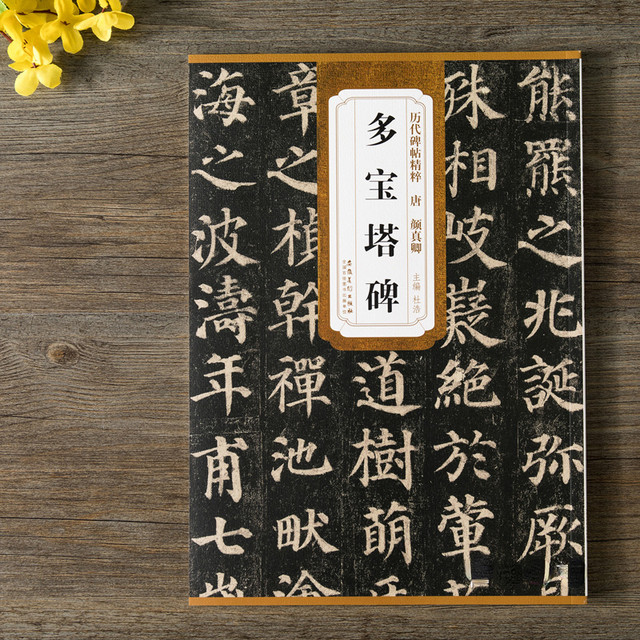 熊羆之兆誕弥厥
殊相岐嶷絶於葷
道樹萌
章之楨幹禪池畎
海之波濤年甫七
历代碑帖精粹 唐 颜真卿
主编 杜浩
多宝塔碑
安徽美术出版社